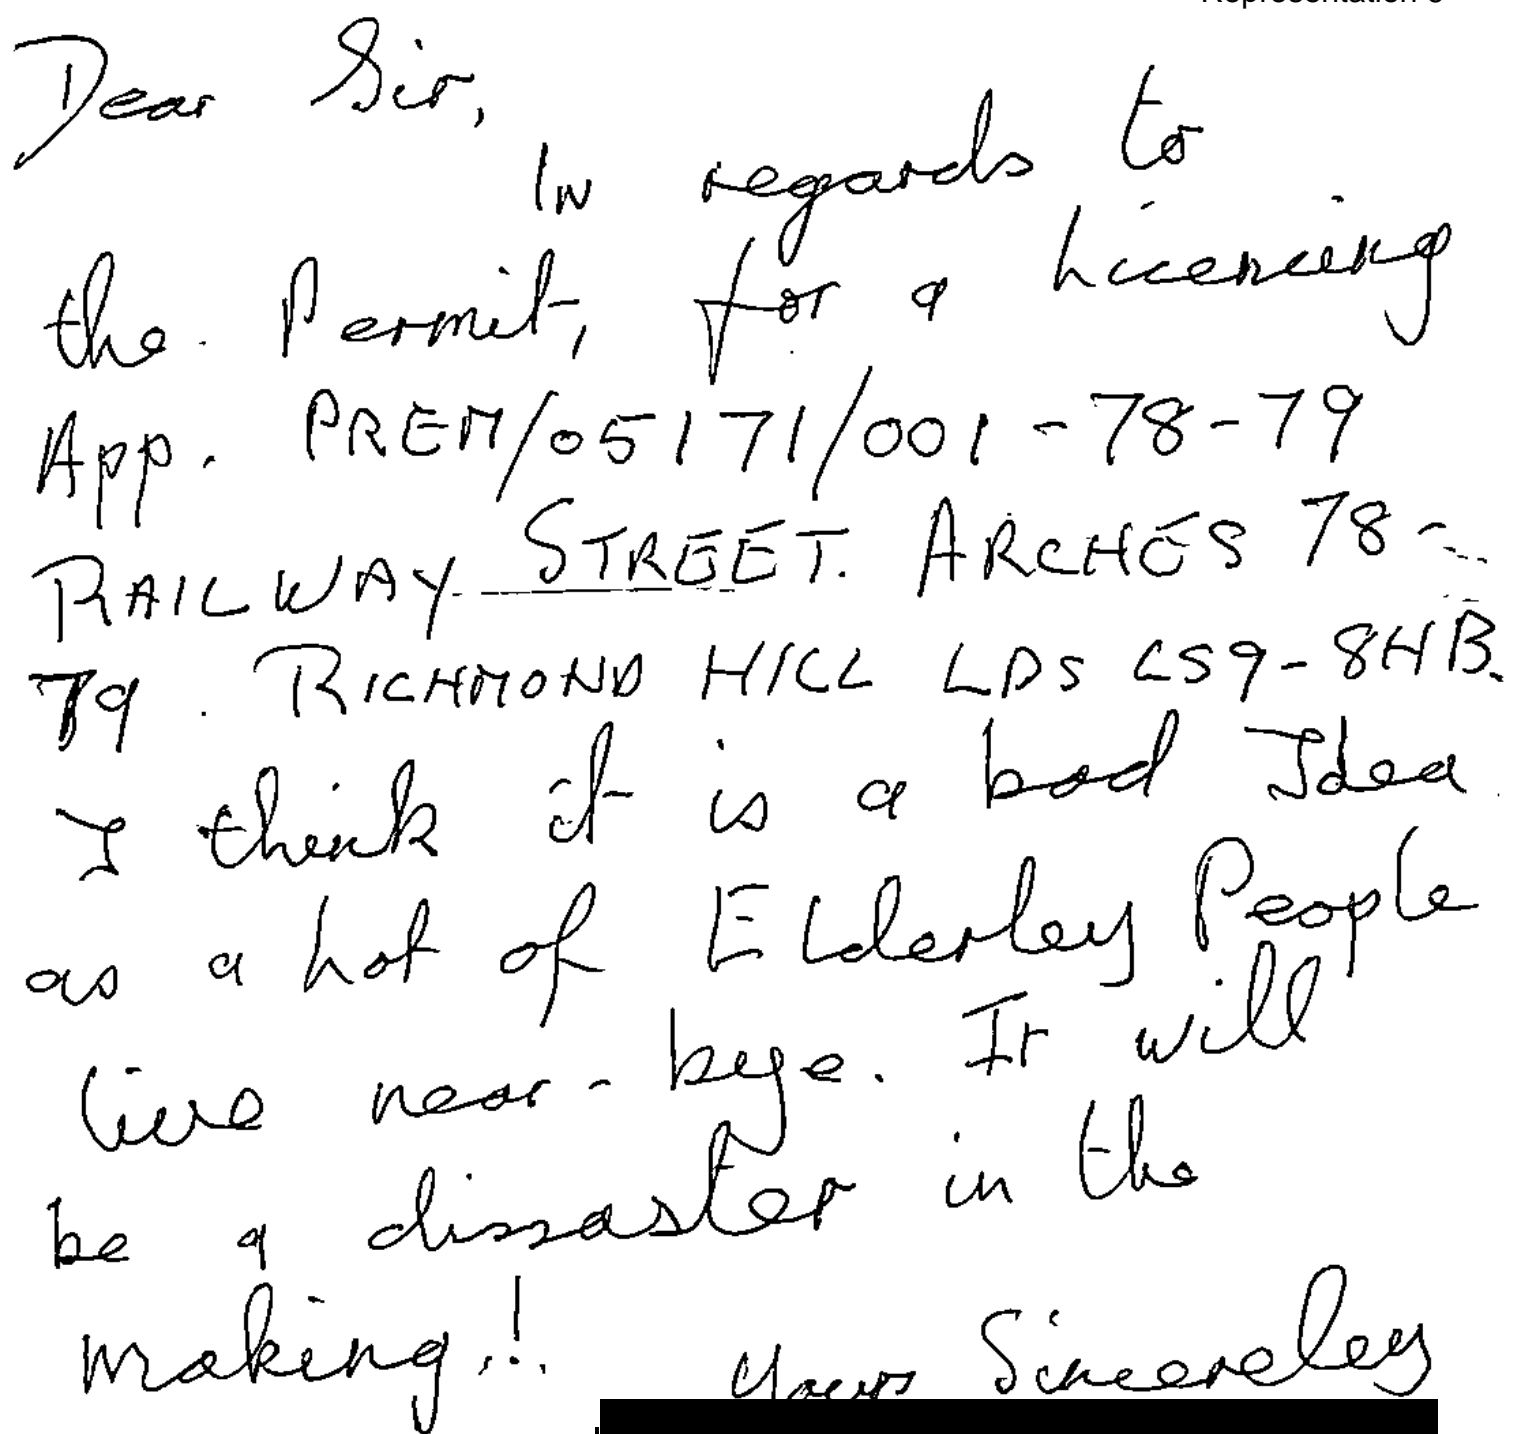 Representation
Dear Sir,
In regards to
the. Permit, for a Licencing
App. PREM/05171/001-78-79
RAILWAY STREET. ARCHES 78-
79. RICHMOND HILL LDS LS9-8HB.
I think it is a bad Idea
as a Lot of Elderley People
live near-bye. It will
be a dissaster in the
making!
Yours Sincereley